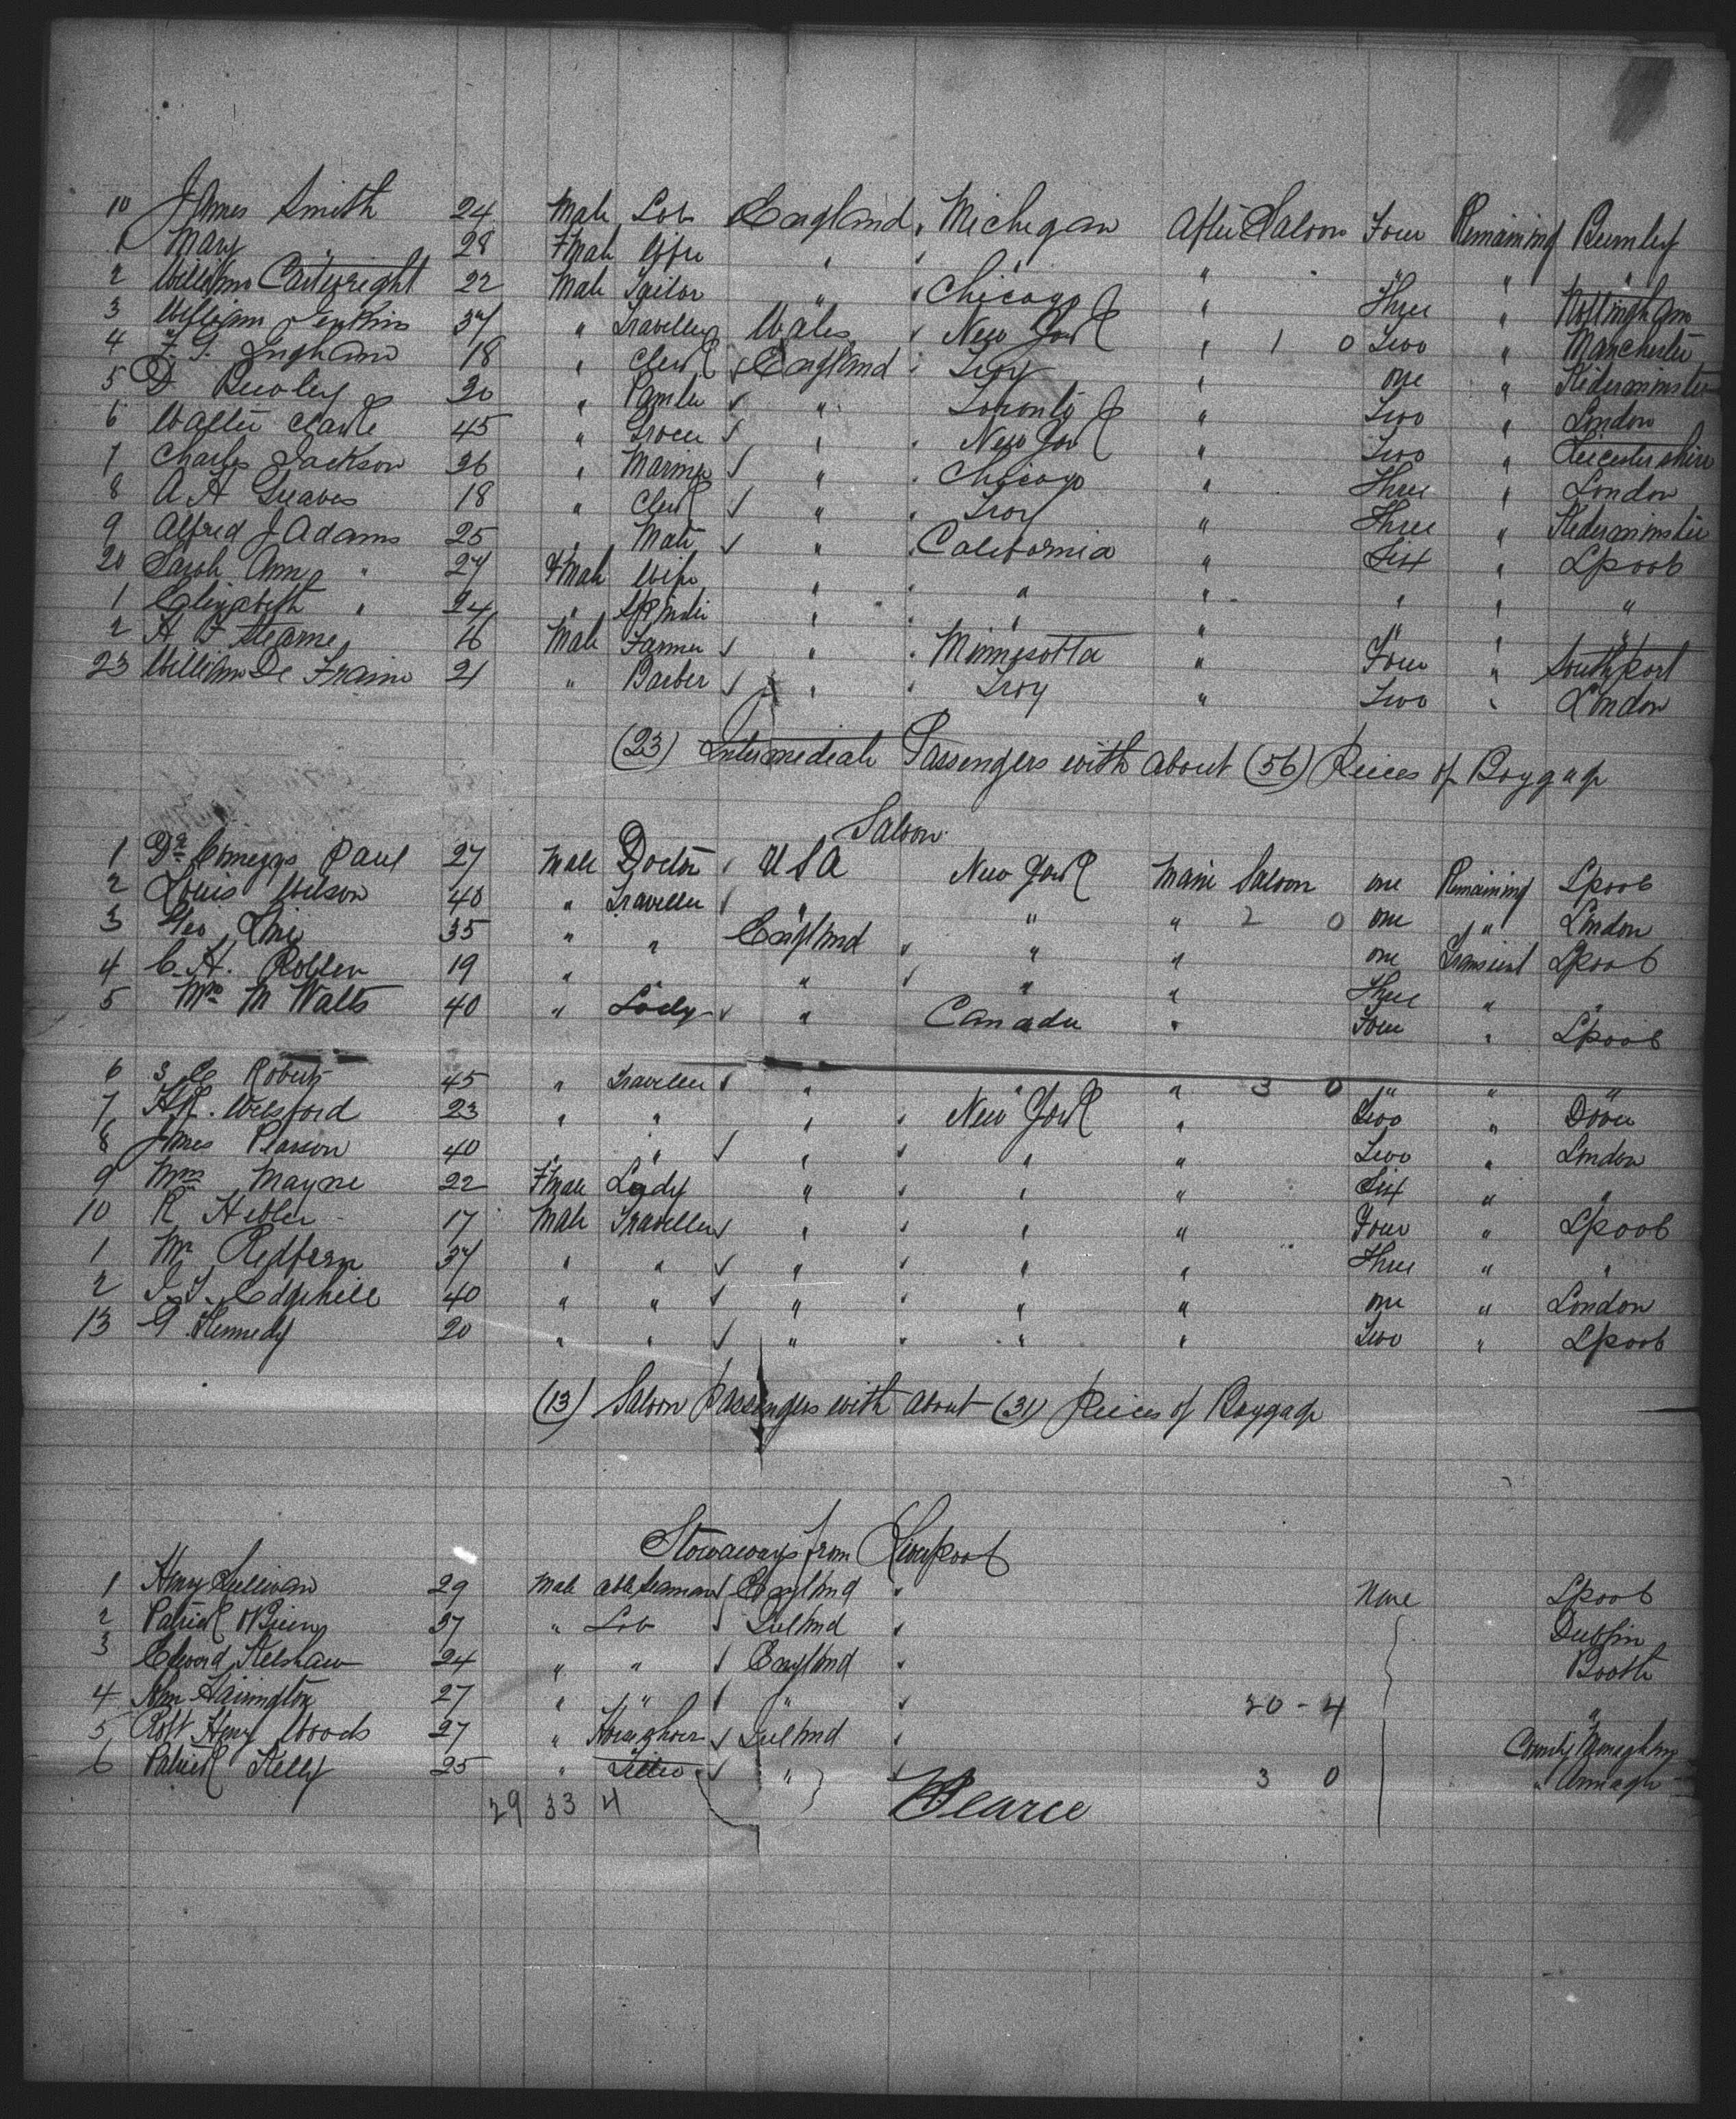 10 James Smith 24 Male Lab England Michigan After Saloon Four Remaining Burnley
1 Mary " 28 Fmale Wife " " " " " "
2 William Cartwright 22 Male Tailor " Chicago " Three " Nottingham
3 William Jenkins 37 " Traveller Wales New York " 1 0 Two " Manchester
4 F. G. Ingham 18 " Clerk England Troy " one " Kiderminster
5 D Bewley 20 " " Toronto " Two " London
6 Walter Clarke 45 " Grocer " New York " Two " Leicestershire
7 Charles Jackson 26 " Mariner " Chicago " Three " London
8 A H Greaves 18 " Clerk " Troy " Three " Kiderminster
9 Alfred J Adams 25 " Mate " California " Six " Lpool
20 Sarah Ann " 27 Fmale Wife " " " " " "
1 Elizabeth " 24 " " " " " " "
2 H F Hearne 16 Male Farmer " Minnesotta " Four " Southport
23 William De Fraine 21 " Barber " Troy " Two " London
(23) Intermediate Passengers with about (56) Pieces of Baggage
Saloon
1 Dr Comeggs Paul 27 Male Doctor U S A New York Main Saloon one Remaining Lpool
2 Louis Wilson 40 " Traveller " " " 2 0 one " London
3 Geo Line 35 " " England " " one Transient Lpool
4 C. H. 19 " " " " Three " "
5 Mrs M Watts 40 " Lady " Canada " Four " Lpool
6 S C Roberts 45 " Traveller " " " 3 0 " " "
7 H R. Welsford 23 " " " New York " Two " Dover
8 James Pearson 40 " " " " " Two " London
9 Mrs Mayne 22 Fmale Lady " " " Six " "
10 R Hebler 17 Male Traveller " " " Four " Lpool
1 Mr Redfern 37 " " " " " Three " "
2 J. T. Edgehill 40 " " " " " one " London
13 G Kennedy 20 " " " " " Two " Lpool
(13) Saloon Passengers with about (31) Pieces of Baggage
Stowaways from Liverpool
1 Henry Sullivan 29 Male able Seaman England None Lpool
2 Patrick OBrien 37 " Lab Ireland Dublin
3 Edward Kelshaw 24 " " England Bootle
4 John Harrington 27 " " " 20 - 4 "
5 Robt Henry Woods 27 " Ireland County Monaghan
6 Patrick Kelly 25 " " 3 0 " Armagh
29 33 4 Pearce